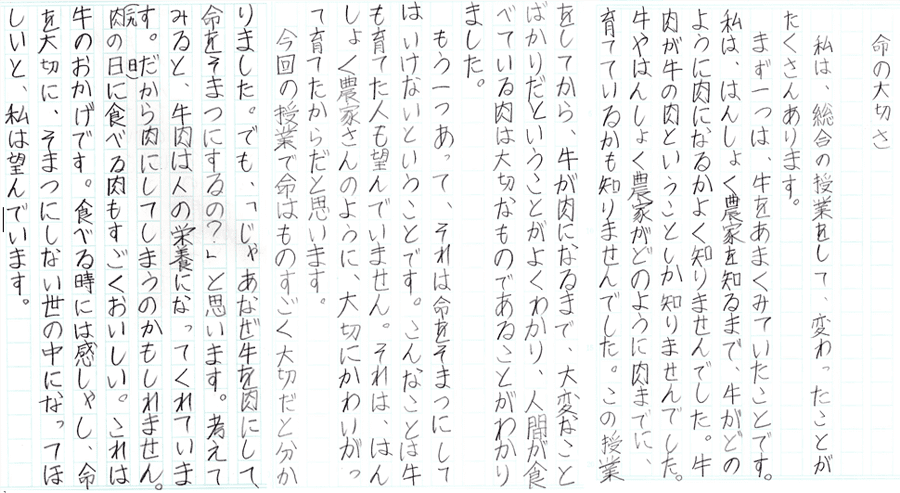 命の大切さ
私は、総合の授業をして、変わったことが
たくさんあります。
まず一つは、牛をあまくみていたことです。
私は、はんしょく農家を知るまで、牛がどの
ように肉になるかよく知りませんでした。牛
肉が牛の肉ということしか知りませんでした。
牛やはんしょく農家がどのように肉までに、
育てているかも知りませんでした。この授業
をしてから、牛が肉になるまで、大変なこと
ばかりだということがよくわかり、人間が食
べている肉は大切なものであることがわかり
ました。
もう一つあって、それは命をそまつにして
はいけないということです。こんなことは牛
も育てた人も望んでいません。それは、はん
しょく農家さんのように、大切にかわいがっ
て育てたからだと思います。
今回の授業で命はものすごく大切だと分か
りました。でも、「じゃあなぜ牛を肉にして、
命をそまつにするの?」と思います。考えて
みると、牛肉は人の栄養になってくれていま
す。だから肉にしてしまうのかもしれません。
肉の日に食べる肉もすごくおいしい。これは
牛のおかげです。食べる時には感しゃし、命
を大切に、そまつにしない世の中になってほ
しいと、私は望んでいます。